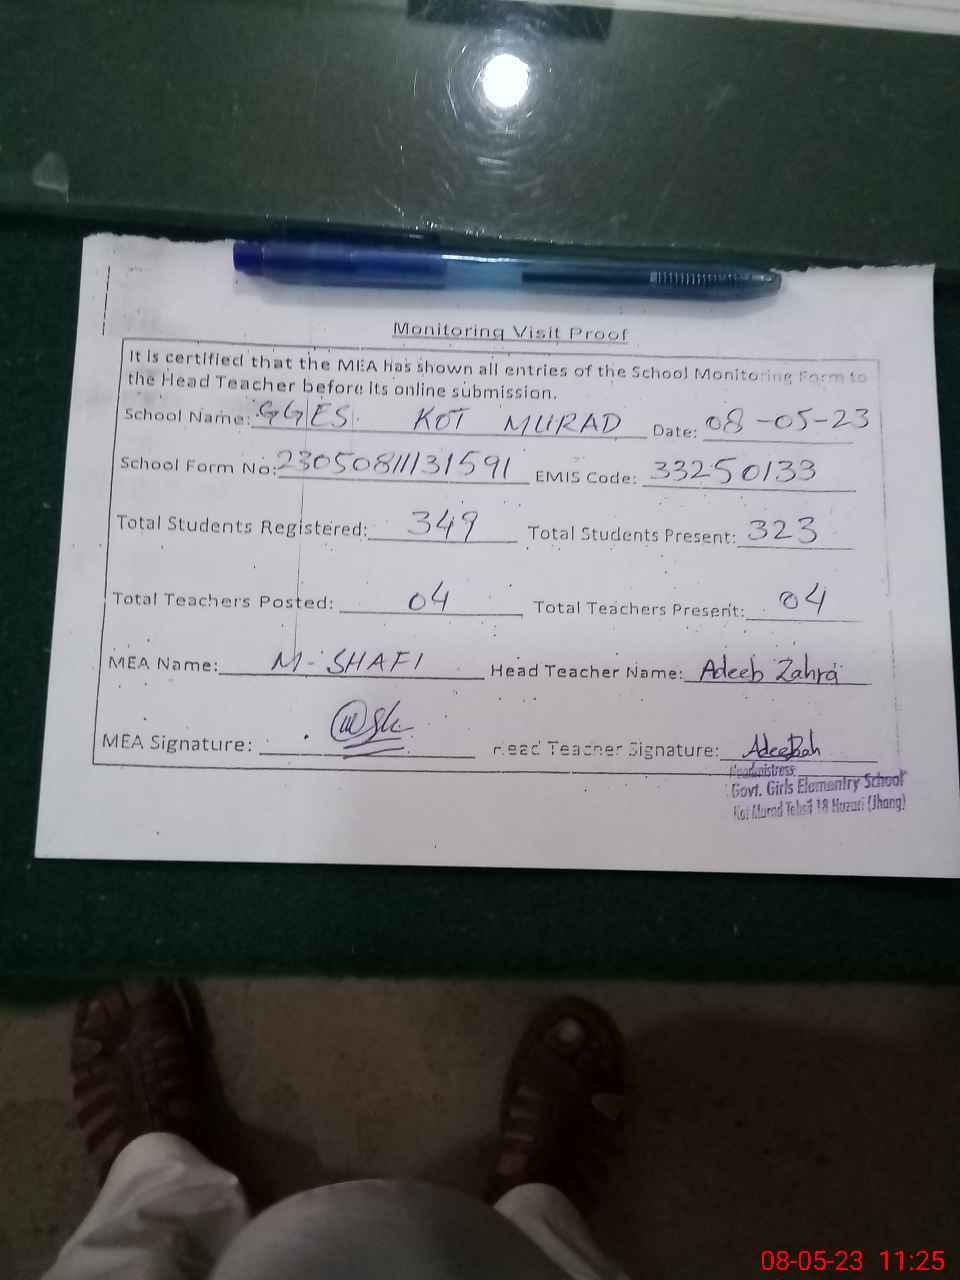 Monitoring Visit Proof
It is certified that the MEA has shown all entries of the School Monitoring Form to
the Head Teacher before its online submission.
School Name: GGES KOT MURAD Date: 08-05-23
School Form No: 23050811131591 EMIS Code: 33250133
Total Students Registered: 349 Total Students Present: 323
Total Teachers Posted: 04 Total Teachers Present: 04
MEA Name: M-SHAFI Head Teacher Name: Adeeb Zahra
MEA Signature: Head Teacher Signature: Adeebah
Headmistress
Govt. Girls Elementry School
Kot Murad Tehsil 18 Hazari (Jhang)
08-05-23 11:25